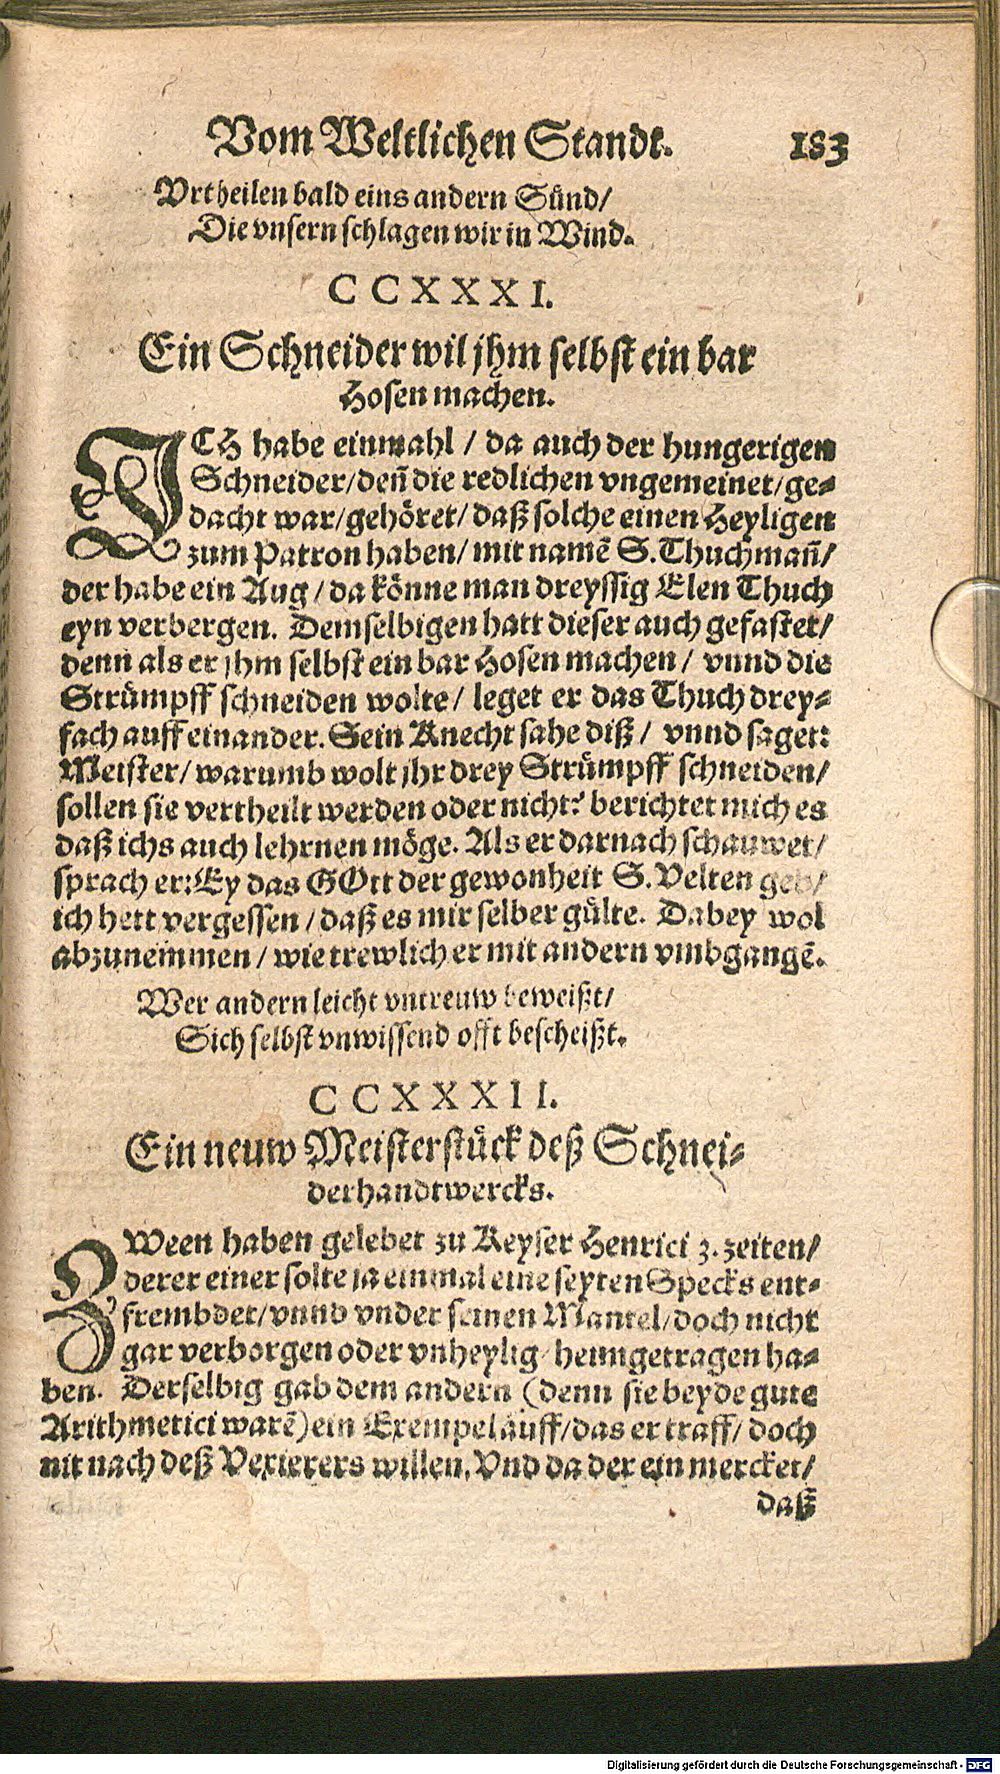 Vom Weltlichen Standt. 183
Vrtheilen bald eins andern Sünd/
Die vnsern schlagen wir in Wind.
CCXXXI.
Ein Schneider wil jhm selbst ein bar
Hosen machen.
ICH habe einmahl / da auch der hungerigen
Schneider/ den̄ die redlichen vngemeinet/ ge-
dacht war/ gehöret/ daß solche einen Heyligen
zum Patron haben/ mit namẽ S. Thuchman̄/
der habe ein Aug / da könne man dreyssig Elen Thuch
eyn verbergen. Demselbigen hatt dieser auch gefastet/
denn als er jhm selbst ein bar Hosen machen / vnnd die
Strümpff schneiden wolte/ leget er das Thuch drey-
fach auff einander. Sein Knecht sahe diß / vnnd saget:
Meister/ warumb wolt jhr drey Strümpff schneiden/
sollen sie vertheilt werden oder nicht? berichtet mich es
daß ichs auch lehrnen möge. Als er darnach schauwet/
sprach er: Ey das GOtt der gewonheit S. Velten geb/
ich hett vergessen / daß es mir selber gülte. Dabey wol
abzunemmen / wie trewlich er mit andern vmbgangẽ.
Wer andern leicht vntreuw beweißt/
Sich selbst vnwissend offt bescheißt.
CCXXXII.
Ein neuw Meisterstück deß Schnei-
derhandtwercks.
ZWeen haben gelebet zu Keyser Henrici 3. zeiten/
derer einer solte ja einmal eine seyten Specks ent-
frembdet/ vnnd vnder seinen Mantel/ doch nicht
gar verborgen oder vnheylig/ heimgetragen ha-
ben. Derselbig gab dem andern (denn sie beyde gute
Arithmetici warẽ) ein Exempel auff/ das er traff/ doch
nit nach deß Vexierers willen. Vnd da der ein mercket/
daß
Digitalisierung gefördert durch die Deutsche Forschungsgemeinschaft - DFG